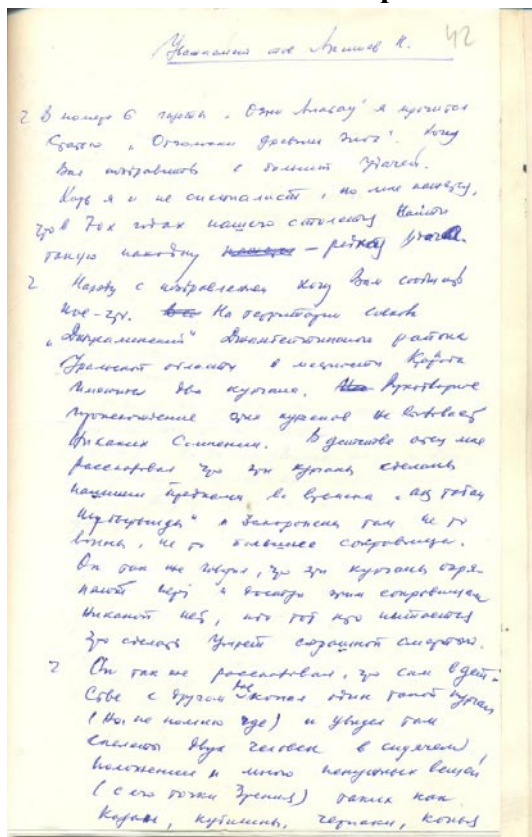 42
Уважаемый тов
В номере 6 газеты "Огни Алатау" я прочитал
статью "Отголоски древних эпох". Хочу
Вас поздравить с большой удачей.
Хоть я и не специалист, но мне кажется,
что в 70х годах нашего столетия найти
такую находку - редкая удача.
Наряду с поздравлением хочу Вам сообщить
кое-что. На территории совхоза
района
Уральской области в местности
имеются два кургана. Рукотворное
происхождение этих курганов не вызывает
никаких сомнений. В детстве отец мне
рассказывал что эти курганы сделаны
нашими предками во времена
и захоронены там не то
воины, не то большие сокровища.
Он так же говорил, что эти курганы охра-
няют и доступа этим сокровищам
никакой нет, ибо тот кто пытается
это сделать умрет страшной смертью.
Он так же рассказывал, что сам в дет-
стве с другом копал один такой курган
(Но, не помню где) и увидел там
скелеты двух человек в сидячем
положении и много ненужных вещей
(с его точки зрения) таких как
кувшины, черпаки, копья